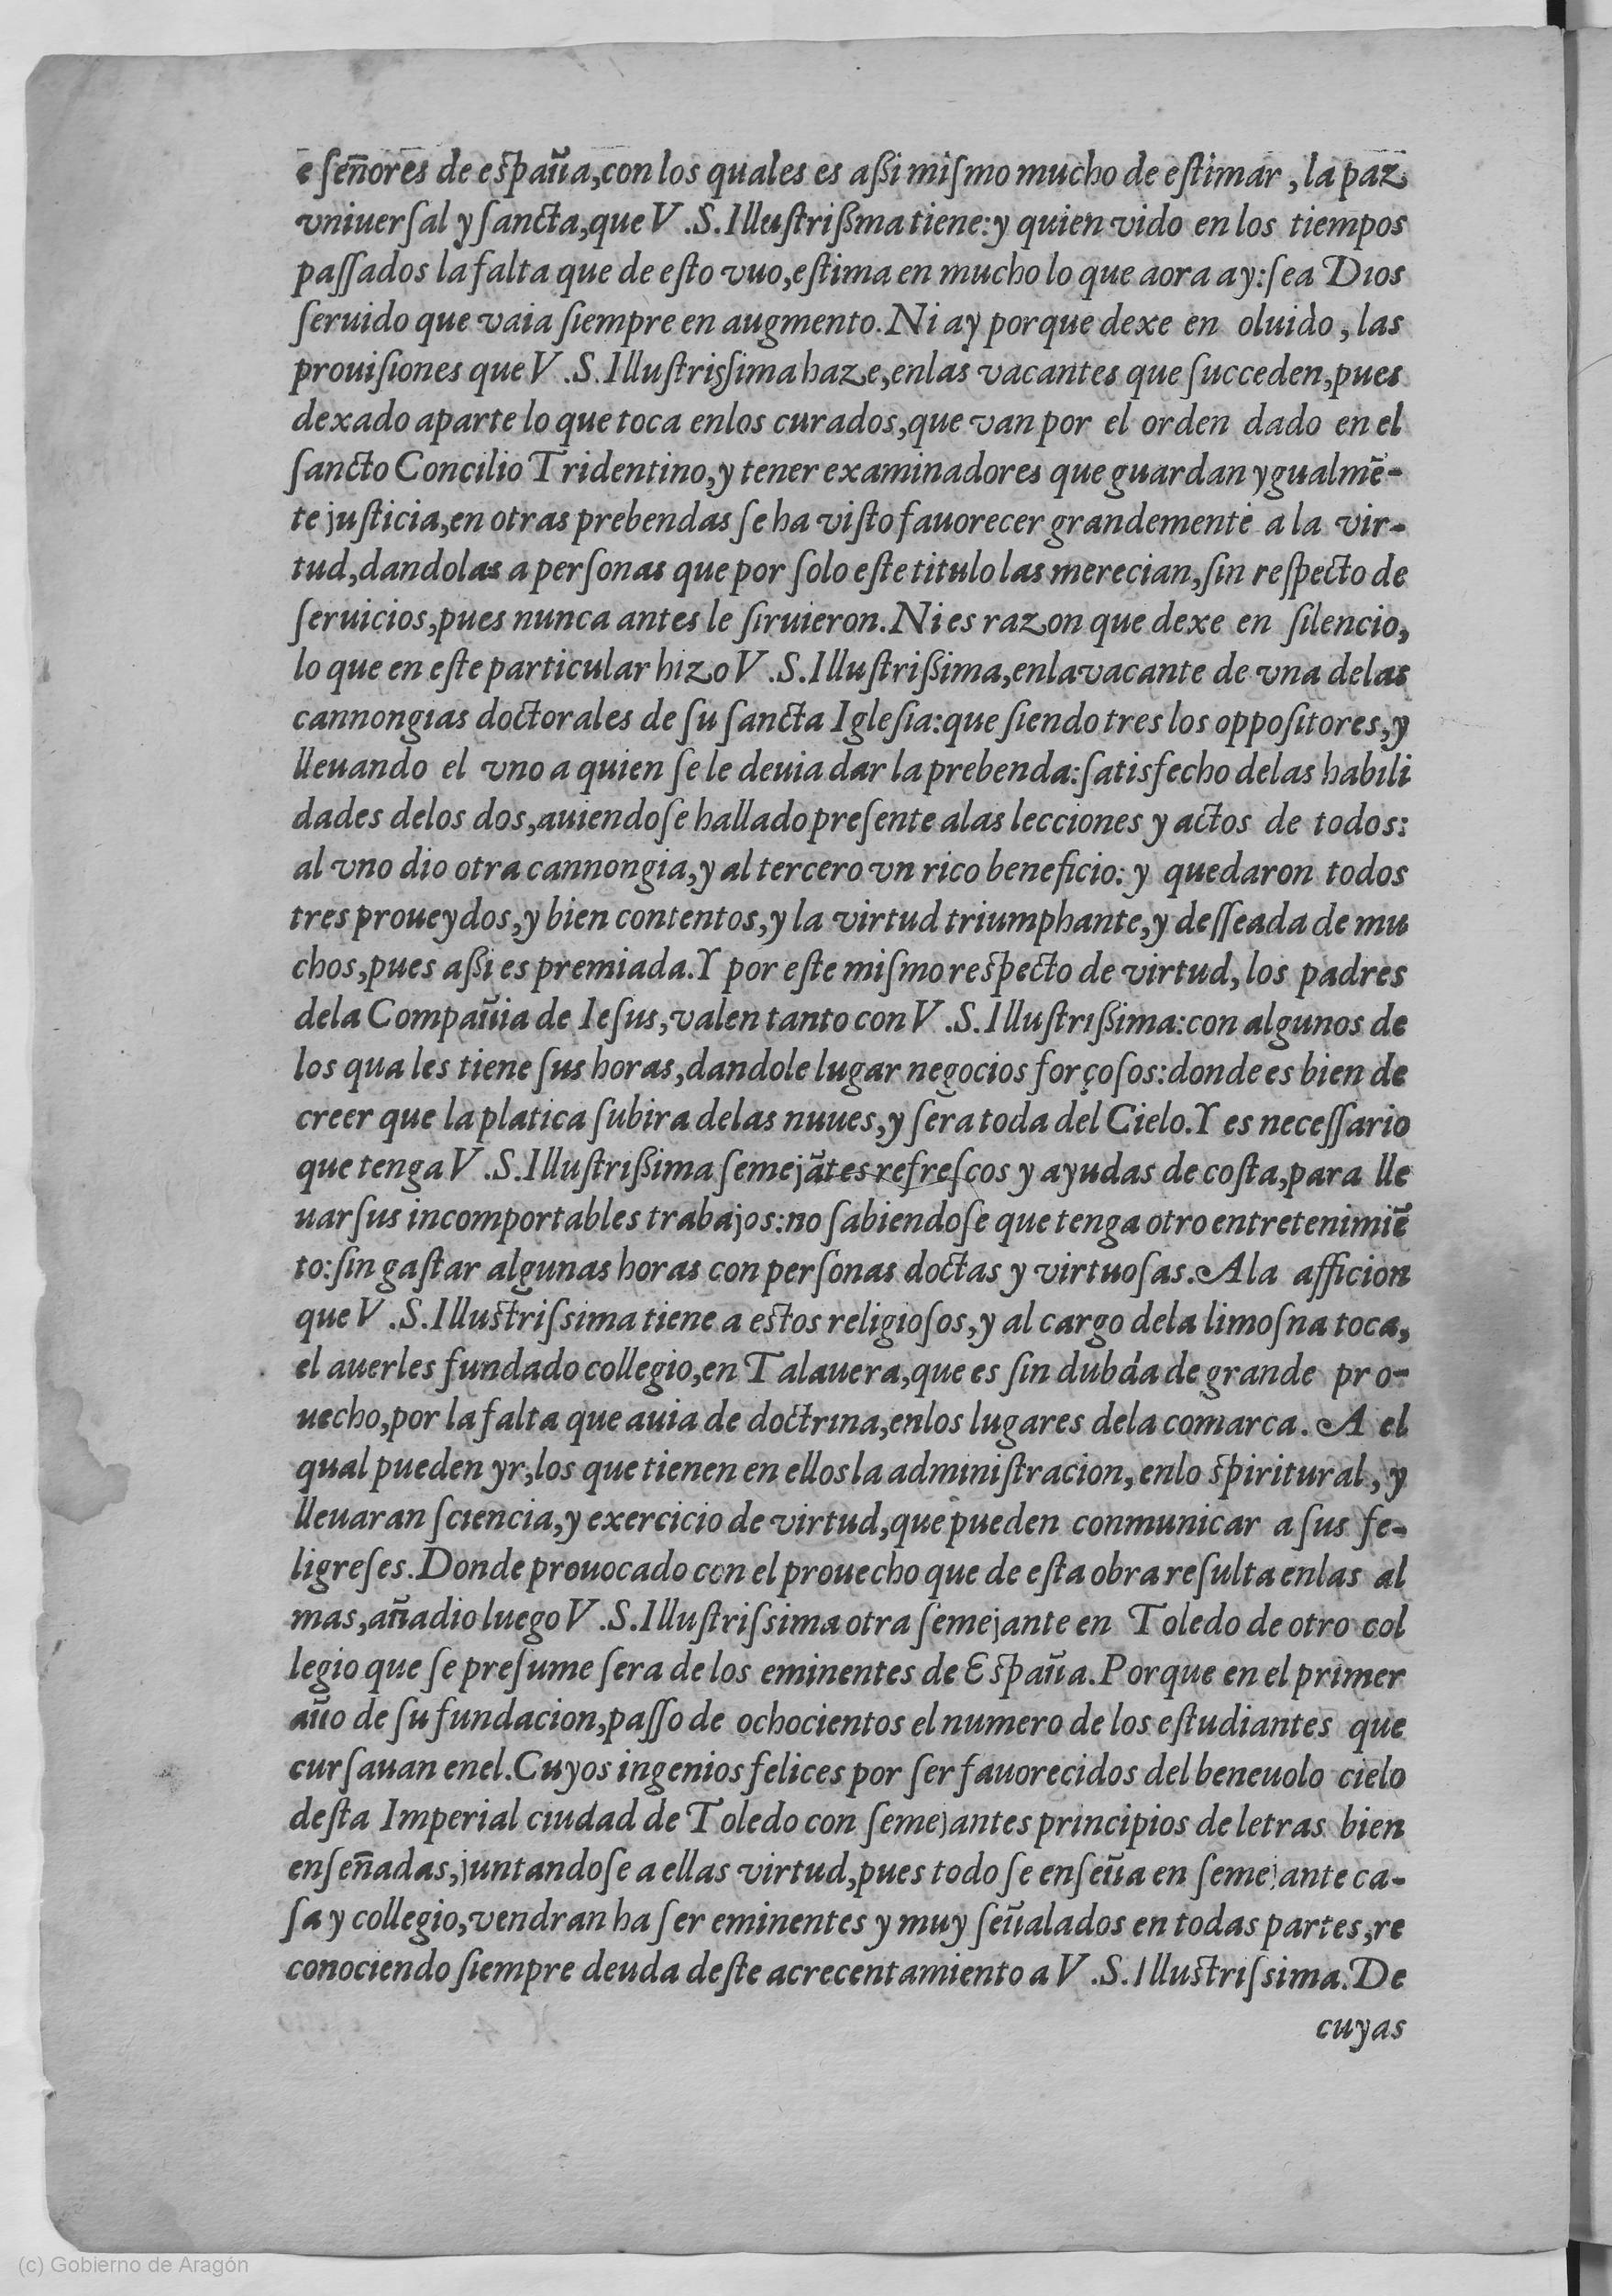 e ſeñores de eſpaña,con los quales es aßi miſmo mucho de eſtimar, la paz
vniuerſal y ſancta,que V.S.Illuſtrißma tiene:y quien vido en los tiempos
paſſados la falta que de eſto vuo,eſtima en mucho lo que aora ay:ſea Dios
ſeruido que vaia ſiempre en augmento.Ni ay porque dexe en oluido, las
prouiſiones que V.S.Illuſtriſſima haze,enlas vacantes que ſucceden,pues
dexado aparte lo que toca enlos curados,que van por el orden dado en el
ſancto Concilio Tridentino,y tener examinadores que guardan ygualmẽ-
te juſticia,en otras prebendas ſe ha viſto fauorecer grandemente a la vir-
tud,dandolas a perſonas que por ſolo eſte titulo las merecian,ſin reſpecto de
ſeruicios,pues nunca antes le ſiruieron.Ni es razon que dexe en ſilencio,
lo que en eſte particular hizo V.S.Illuſtrißima,enla vacante de vna delas
cannongias doctorales de ſu ſancta Igleſia:que ſiendo tres los oppoſitores,y
lleuando el vno a quien ſe le deuia dar la prebenda:ſatisfecho delas habili
dades delos dos,auiendoſe hallado preſente alas lecciones y actos de todos:
al vno dio otra cannongia,y al tercero vn rico beneficio: y quedaron todos
tres proueydos,y bien contentos,y la virtud triumphante,y deſſeada de mu
chos,pues aßi es premiada.Y por eſte miſmo reſpecto de virtud, los padres
dela Compañia de Ieſus,valen tanto con V.S.Illuſtrißima:con algunos de
los quales tiene ſus horas,dandole lugar negocios forçoſos:donde es bien de
creer que la platica ſubira delas nuues,y ſera toda del Cielo.Y es neceſſario
que tenga V.S.Illuſtrißima ſemejãtes refreſcos y ayudas de coſta,para lle
uar ſus incomportables trabajos:no ſabiendoſe que tenga otro entretenimiẽ
to:ſin gaſtar algunas horas con perſonas doctas y virtuoſas.Ala afficion
que V.S.Illuſtriſsima tiene a eſtos religioſos,y al cargo dela limoſna toca,
el auerles fundado collegio,en Talauera,que es ſin dubda de grande pro-
uecho,por la falta que auia de doctrina,enlos lugares dela comarca. A el
qual pueden yr,los que tienen en ellos la adminiſtracion,enlo ſpiritural, y
lleuaran ſciencia,y exercicio de virtud,que pueden conmunicar a ſus fe-
ligreſes.Donde prouocado con el prouecho que de eſta obra reſulta enlas al
mas,añadio luego V.S.Illuſtriſsima otra ſemejante en Toledo de otro col
legio que ſe preſume ſera de los eminentes de Eſpaña.Porque en el primer
año de ſu fundacion,paſſo de ochocientos el numero de los eſtudiantes que
curſauan enel.Cuyos ingenios felices por ſer fauorecidos del beneuolo cielo
deſta Imperial ciudad de Toledo con ſemejantes principios de letras bien
enſeñadas,juntandoſe a ellas virtud,pues todo ſe enſeña en ſemejante ca-
ſa y collegio,vendran ha ſer eminentes y muy ſeñalados en todas partes,re
conociendo ſiempre deuda deſte acrecentamiento a V.S.Illuſtriſsima.De
cuyas
(c) Gobierno de Aragón